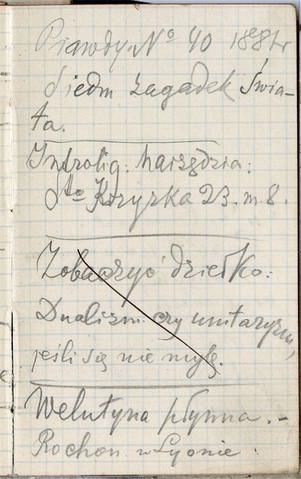 Prawdy. Nº 40 1881 r
Siedm zagadek Świa-
ta.
Introlig: Narzędzia:
S-to Krzyzka 23. m 8.
Zobaczyć dziełko:
Dualizm czy unitaryzm,
jeśli się nie mylę.
Welutyna płynna. -
Rochon w Lyonie.